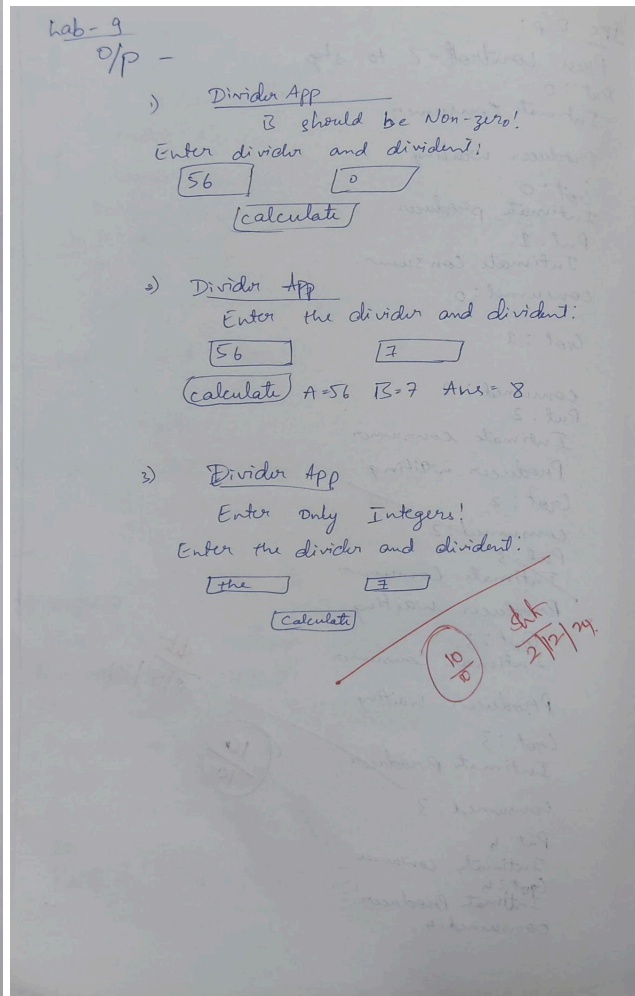 Lab-9
O/P -
1) Divider App
B should be Non-zero!
Enter divider and divident:
56 0
calculate
2) Divider App
Enter the divider and divident:
56 7
calculate A=56 B=7 Ans= 8
3) Divider App
Enter Only Integers!
Enter the divider and divident:
the 7
Calculate
10/10
2/12/24.